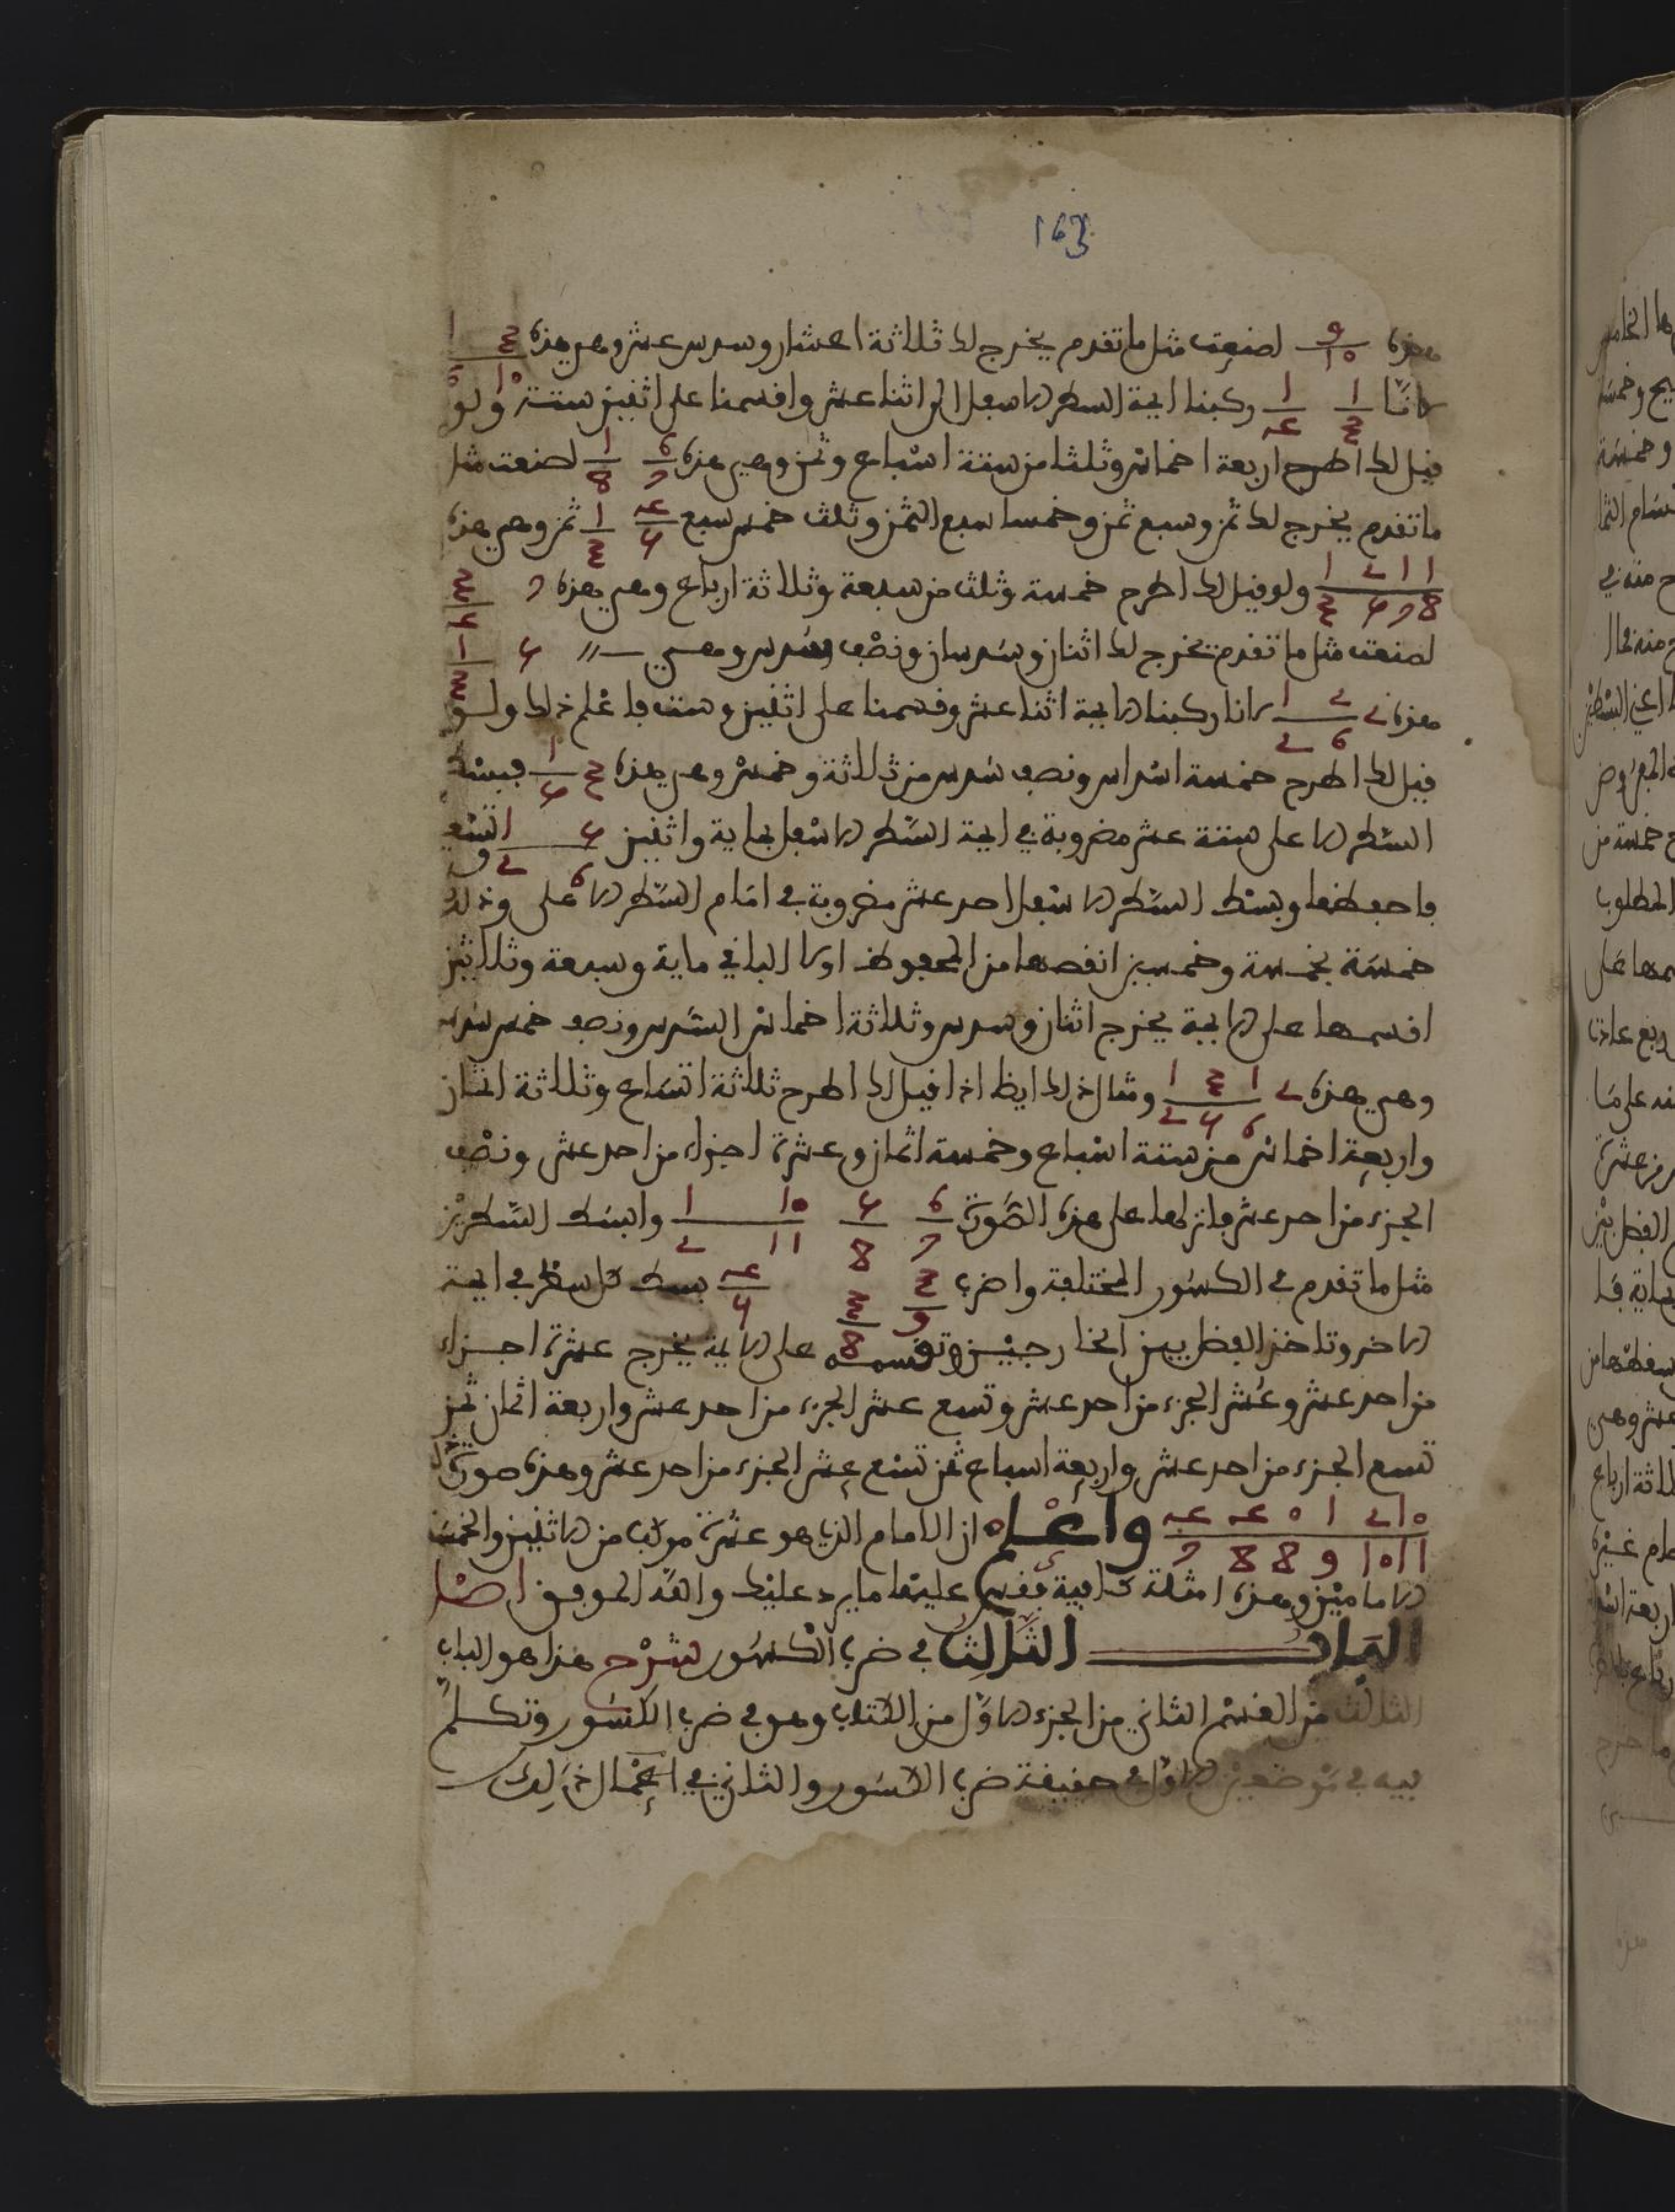 163
هذه 9/10 لصنعت مثل ما تقدم يخرج لك ثلاثة اعشار وسدس عشر وهي هذه 3 1
لانا 1/3 1/4 ركبنا ايمة السطر الاسفل الى اثنا عشر واقسمنا على اثنين ستة 10 ولو
قيل لك اطرح اربعة اخماس وثلثا من ستة اسباع وثمن وهي هذه 6/7 1/8 لصنعت مثل
ما تقدم يخرج لك ثمن وسبع ثمن وخمسا سبع الثمن وثلث خمس سبع 4/5 1/3 ثمن وهي هذه
1 1 2 1 / 8 7 5 3 ولو قيل لك اطرح خمسة وثلث من سبعة وثلاثة ارباع وهي هذه 7 3/4
لصنعت مثل ما تقدم يخرج لك اثنان وسدسان ونصف سدس وهي 5 1/3
هذه 2 2 1 / 6 2 لانا ركبنا الايمة اثنا عشر وقسمنا على اثنين وستة فاعلم ذلك ولو
قيل لك اطرح خمسة اسداس ونصف سدس من ثلاثة وخمس وهي هذه 3 1/5 فبسط
السطر الاعلى ستة عشر مضروبة في ايمة السطر الاسفل بماية واثنين 5 1 / 6 2 وتسعين
فاحفظها وبسط السطر الاسفل احد عشر مضروبة في امام السطر الاعلى وذلك
خمسة بخمسة وخمسين انقصها من المحفوظ اولا الباقي ماية وسبعة وثلاثين
اقسمها على الايمة يخرج اثنان وسدس وثلاثة اخماس السدس ونصف خمس سدس
وهي هذه 2 1 3 1 / 6 5 2 ومثال ذلك ايظا اذا قيل لك اطرح ثلاثة اتساع وثلاثة اثمان
واربعة اخماس من ستة اسباع وخمسة اثمان وعشرة اجزاء من احد عشر ونصف
الجزء من احد عشر فانزلها على هذه الصورة 6/7 5/8 10 1 / 11 2 وابسط السطرين
مثل ما تقدم في الكسور المختلفة واضرب 3/9 3/8 4/5 بسط كل سطر في ايمة
الاخر وتاخذ الفضل بين الخارجين وتقسمه على الايمة يخرج عشرة اجزاء
من احد عشر وعشر الجزء من احد عشر وتسع عشر الجزء من احد عشر واربعة اثمان ثمن
تسع الجزء من احد عشر واربعة اسباع ثمن تسع عشر الجزء من احد عشر وهذه صورة ذلك
10 2 1 0 4 4 / 11 10 9 8 8 7 واعلم ان الامام الذي هو عشرة مركب من الاثنين والخمسة
الامامين وهذه امثلة كافية فقس عليها ما يرد عليك والله الموفق اصل
الباب الثالث في ضرب الكسور شرح هذا هو الباب
الثالث من القسم الثاني من الجزء الاول من الكتاب وهو في ضرب الكسور وتكلم
فيه في موضعين الاول في حقيقة ضرب الكسور والثاني في اعمال ذلك